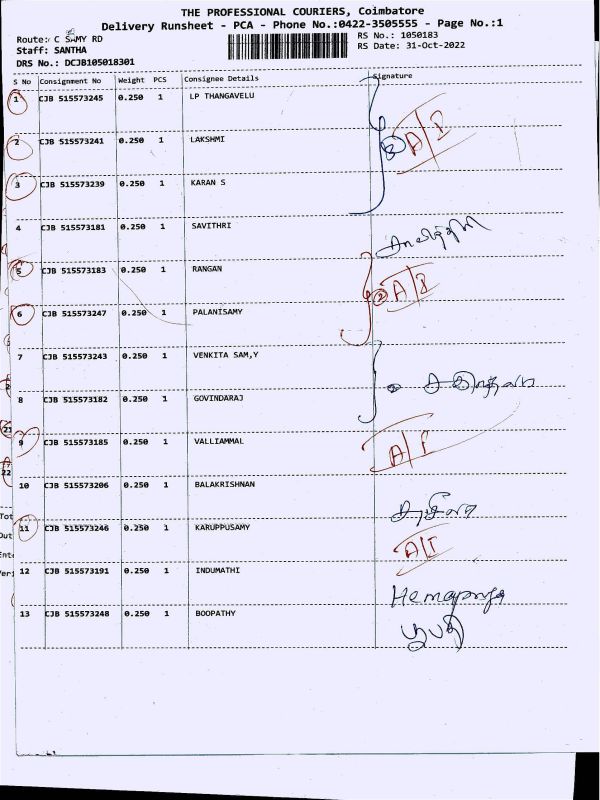 THE PROFESSIONAL COURIERS, Coimbatore
Delivery Runsheet - PCA - Phone No.:0422-3505555 - Page No.:1
Route: C SAMY RD
RS No.: 1050183
Staff: SANTHA
RS Date: 31-Oct-2022
DRS No.: DCJB105018301
S No Consignment No Weight PCS Consignee Details Signature
1 CJB 515573245 0.250 1 LP THANGAVELU
2 CJB 515573241 0.250 1 LAKSHMI ③ A/I
3 CJB 515573239 0.250 1 KARAN S
4 CJB 515573181 0.250 1 SAVITHRI
5 CJB 515573183 0.250 1 RANGAN ② A/I
6 CJB 515573247 0.250 1 PALANISAMY
7 CJB 515573243 0.250 1 VENKITA SAM,Y
8 CJB 515573182 0.250 1 GOVINDARAJ
9 CJB 515573185 0.250 1 VALLIAMMAL A/I
10 CJB 515573206 0.250 1 BALAKRISHNAN
11 CJB 515573246 0.250 1 KARUPPUSAMY A/I
12 CJB 515573191 0.250 1 INDUMATHI
13 CJB 515573248 0.250 1 BOOPATHY பூபதி